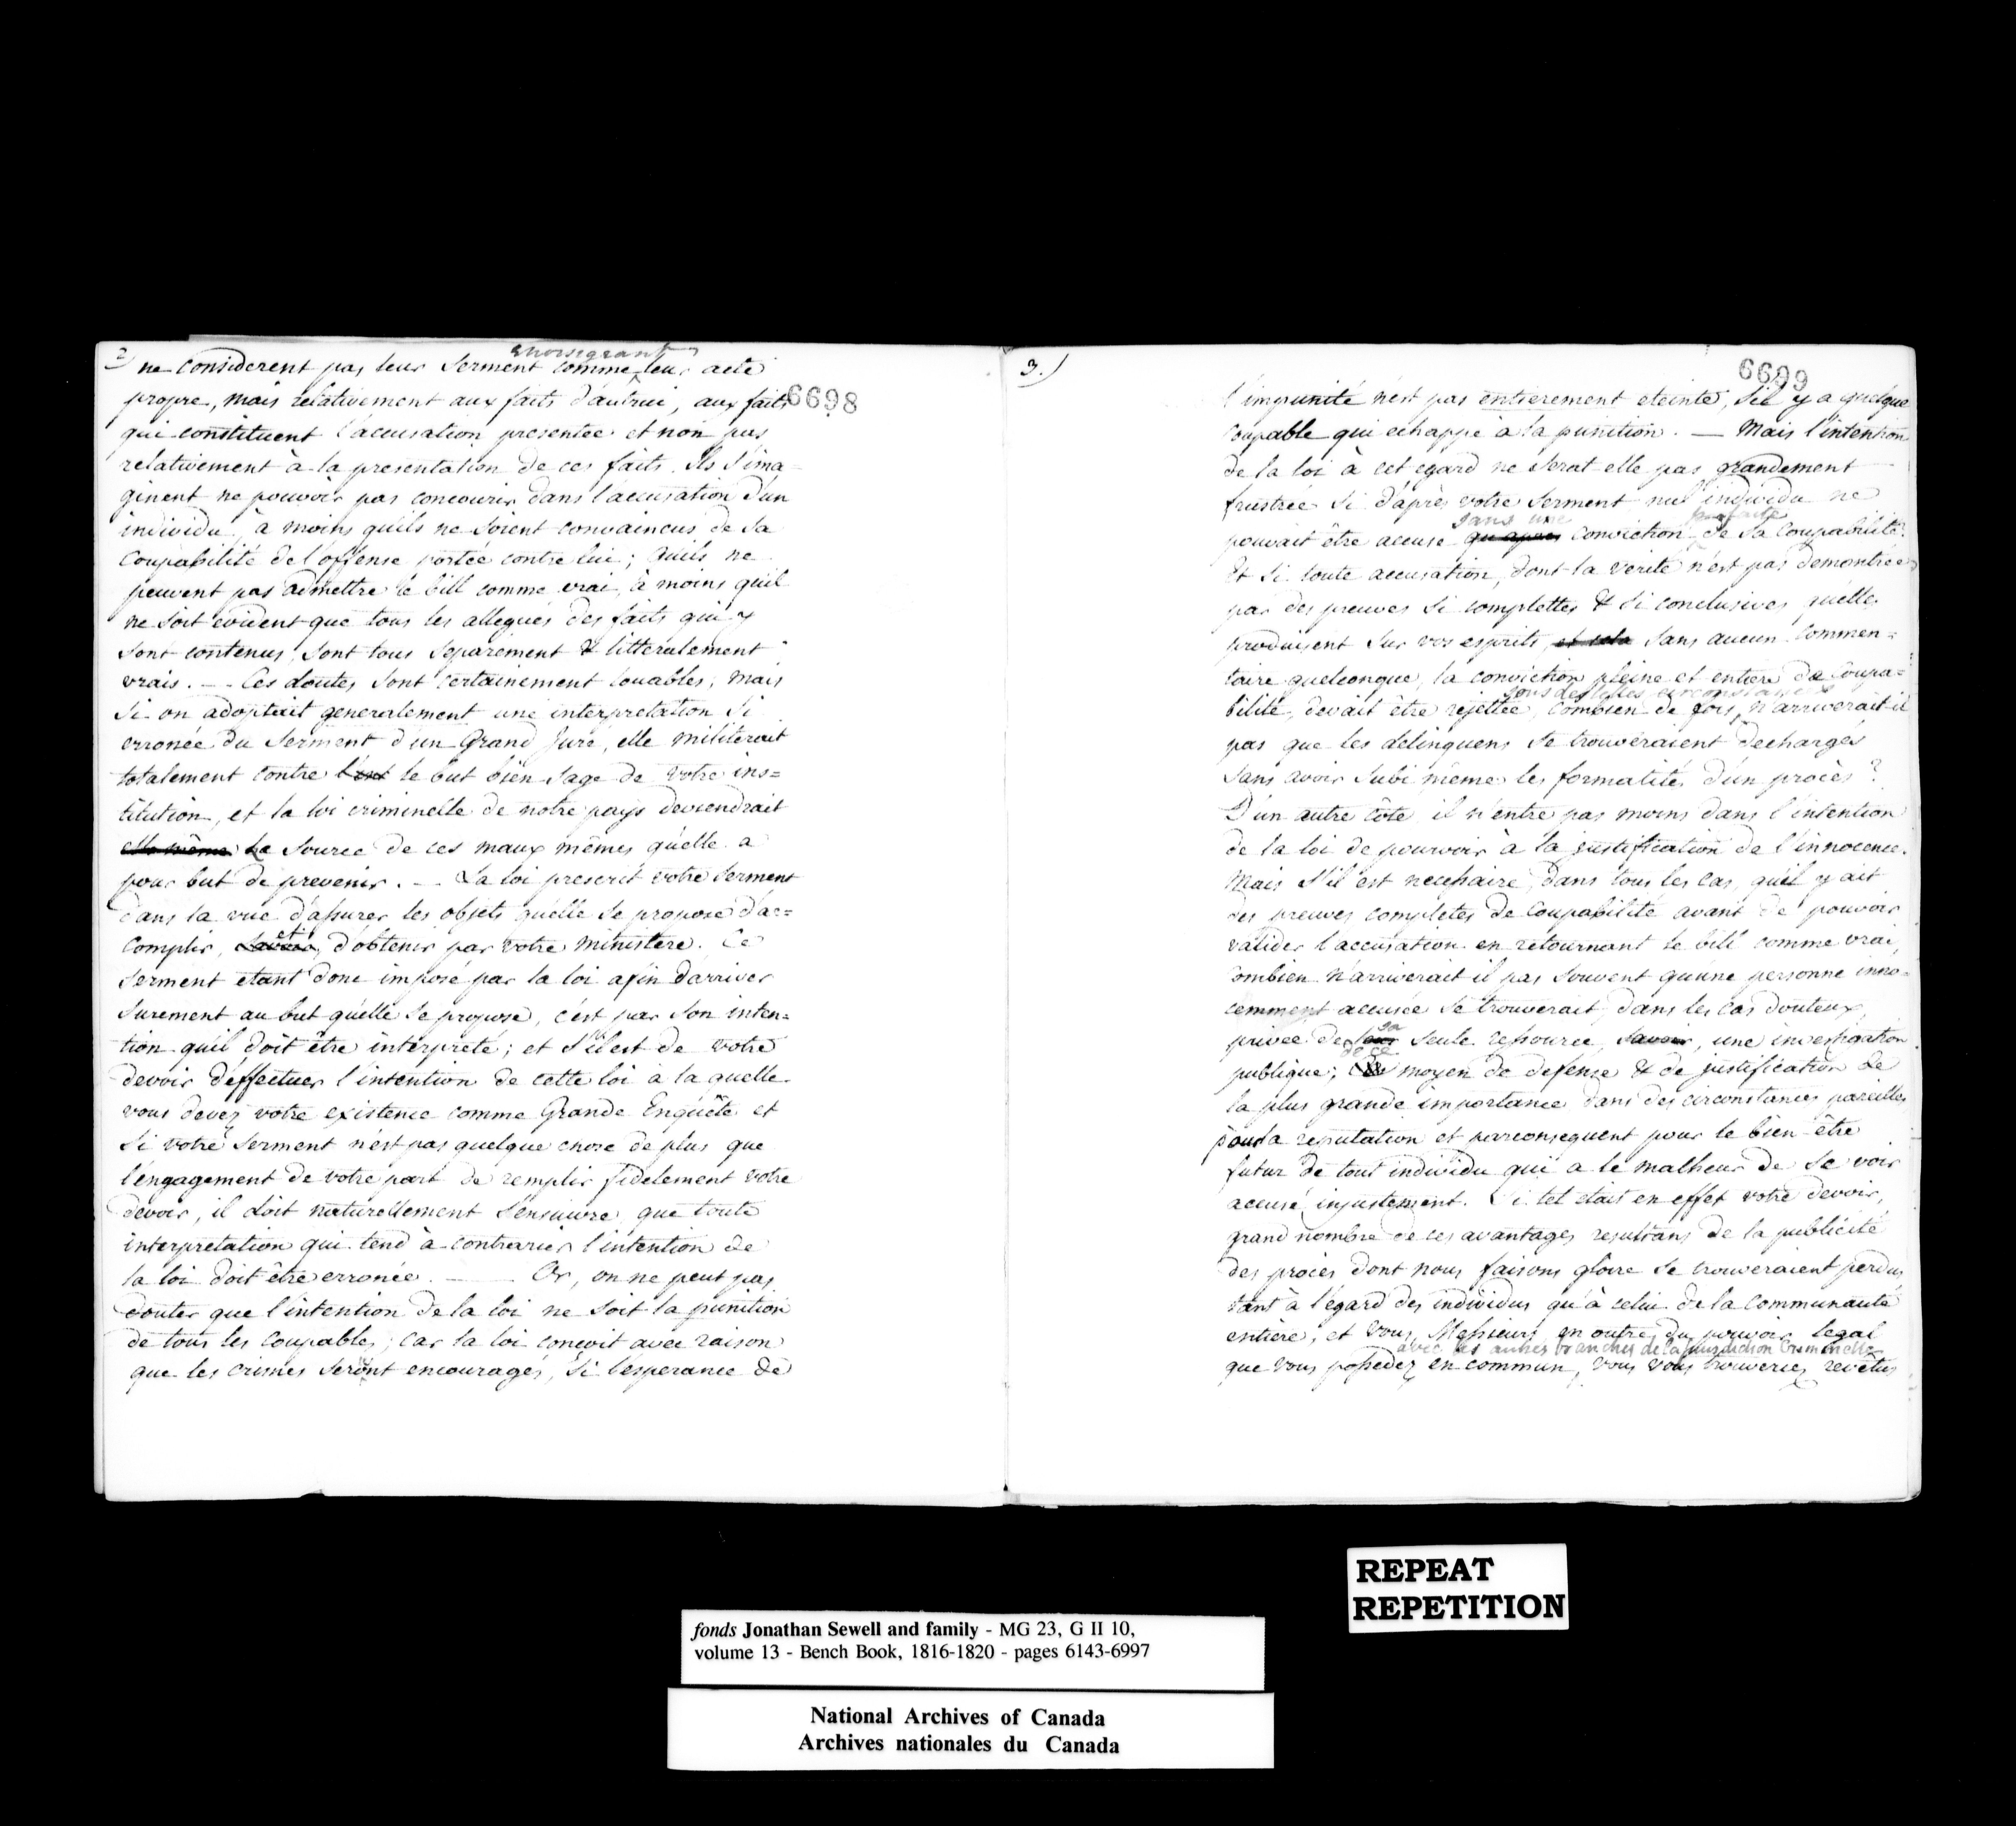 2
envisageant
ne considerent pas leur serment comme leur acte
propre, mais relativement aux faits d'autrui, aux faits
6698
qui constituent l'accusation presentée et non pas
relativement à la presentation de ces faits. Ils s'ima-
ginent ne pouvoir pas concourir dans l'accusation d'un
individu, à moins qu'ils ne soient convaincus de sa
Coupabilité de l'offense portée contre lui; qu'ils ne
peuvent pas admettre le bill comme vrai à moins qu'il
ne soit evident que tous les allegués des faits qui y
sont contenus, sont tous separement & litteralement
vrais. — Ces doutes sont certainement louables; mais
si on adoptait generalement une interpretation si
erronée du Serment d'un Grand Juré, elle militerait
totalement contre le but bien sage de votre ins=
titution, et la loi criminelle de notre pays deviendrait
elle même la source de ces maux mêmes qu'elle a
pour but de prevenir. — La loi prescrit votre serment
dans la vue d'assurer les objets qu'elle se propose d'ac=
et
complir, savoir, d'obtenir par votre ministere. Ce
serment etant donc imposé par la loi afin d'arriver
surement au but qu'elle se propose, c'est par son inten=
tion qu'il doit être interpreté; et s'il est de votre
devoir d'effectuer l'intention de cette loi à la quelle
vous devez votre existence comme Grande Enquête et
si votre serment n'est pas quelque chose de plus que
l'engagement de votre part de remplir fidelement votre
devoir, il doit naturellement s'ensuivre que toute
interpretation qui tend à contrarier l'intention de
la loi doit être erronée. — Or, on ne peut pas
douter que l'intention de la loi ne soit la punition
de tous les coupables; car la loi conçoit avec raison
que les crimes seront encouragés, si l'esperance de
3.)
6699
l'impunité n'est pas entierement eteinte, s'il y a quelque
coupable qui echappe à la punition. — Mais l'intention
de la loi à cet egard ne serat elle pas grandement
frustrée si d'après votre serment nul individu ne
sans une parfaite
pouvait être accusé qu'après conviction de sa Coupabilité.
& si toute accusation, dont la verité n'est pas demontrée
par des preuves si complettes & si conclusives qu'elles
produisent sur vos esprits, et cela sans aucun commen=
taire quelconque, la conviction pleine et entiere de Coupa=
sous de telles circonstances
bilité, devait être rejettée, combien de fois n'arriverait-il
pas que les delinquens se trouveraient dechargés
sans avoir subi même les formalités d'un procès?
D'un autre côté il n'entre pas moins dans l'intention
de la loi de pourvoir à la justification de l'innocence.
Mais s'il est necessaire, dans tous les cas, qu'il y ait
des preuves completes de Coupabilité avant de pouvoir
valider l'accusation en retournant le bill comme vrai,
combien n'arriverait il pas souvent qu'une personne inno=
cemment accusée se trouverait, dans les cas douteux,
sa
privée de leur seule ressource, savoir, une investigation
de ce
publique; moyen de defense & de justification de
la plus grande importance dans des circonstances pareilles
pour la reputation et parconsequent pour le bien-être
futur de tout individu qui a le malheur de se voir
accusé injustement. Si tel etait en effet votre devoir,
grand nombre de ces avantages resultans de la publicité
des procès dont nous faisons gloire se trouveraient perdus
tant à l'egard des individus qu'à celui de la communauté
entiere; et vous, Messieurs, en outre du pouvoir legal
avec les autres branches de la jurisdiction Criminelle
que vous possedez en commun, vous vous trouveriez revêtus
REPEAT
REPETITION
fonds Jonathan Sewell and family - MG 23, G II 10,
volume 13 - Bench Book, 1816-1820 - pages 6143-6997
National Archives of Canada
Archives nationales du Canada